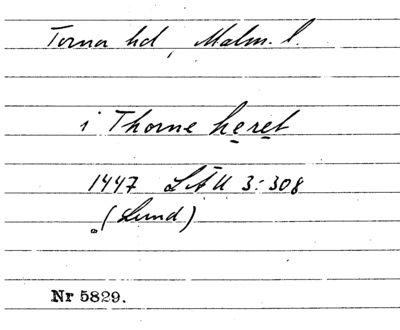 Torna hd, Malm. l.
i Thorne heret
1447 LÄU 3:308
(Lund)
Nr 5829.